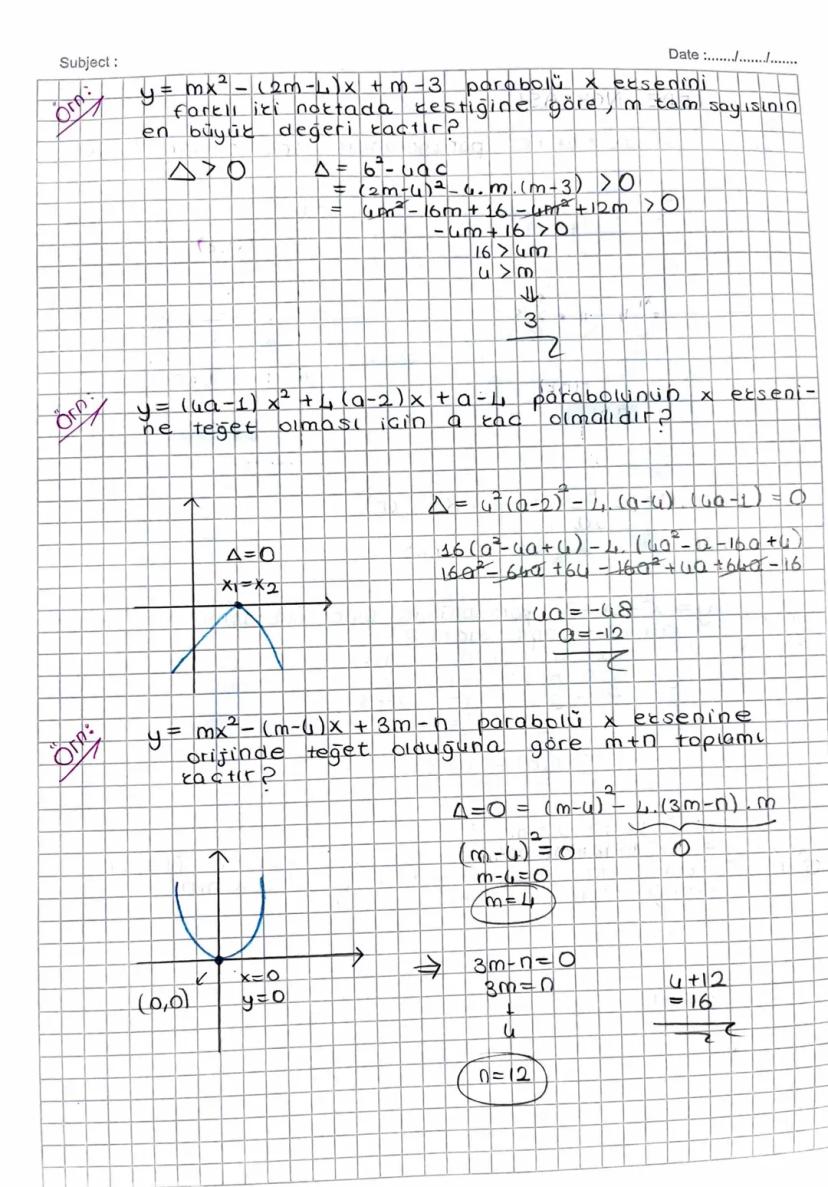 Subject :
Date :......./......./.......
Örn:
y = mx² - (2m-4)x + m-3 parabolü x eksenini
farklı iki noktada kestiğine göre, m tam sayısının
en büyük değeri kaçtır?
Δ > 0
Δ = b² - 4ac
= (2m-4)² - 4.m.(m-3) > 0
= 4m² - 16m + 16 - 4m² + 12m > 0
-4m + 16 > 0
16 > 4m
4 > m
⇓
3
Örn:
y = (4a-1)x² + 4(a-2)x + a-4 parabolünün x ekseni-
ne teğet olması için a kaç olmalıdır?
Δ = 4²(a-2)² - 4.(a-4).(4a-1) = 0
16(a²-4a+4) - 4.(4a²-a-16a+4)
16a² - 64a + 64 - 16a² + 4a + 64a - 16
4a = -48
a = -12
Δ=0
x₁=x₂
Örn:
y = mx² - (m-4)x + 3m-n parabolü x eksenine
orijinde teğet olduğuna göre m+n toplamı
kaçtır?
Δ=0 = (m-4)² - 4.(3m-n).m
0
(m-4)² = 0
m-4=0
m=4
(0,0)
x=0
y=0
⇒ 3m-n=0
3m=n
↓
4
n=12
4+12
=16